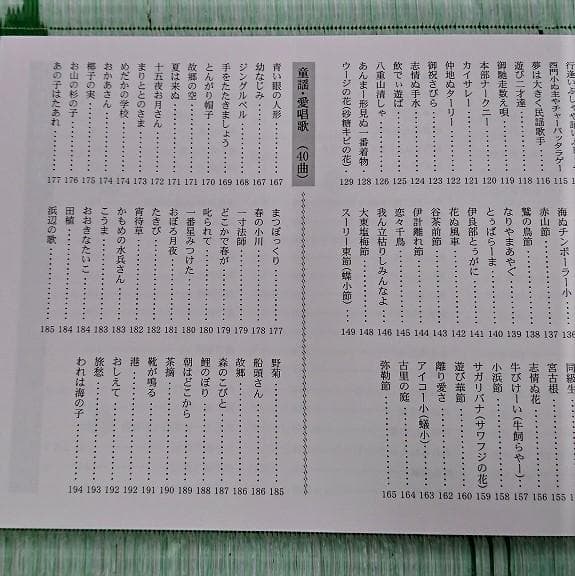 西門小ぬ主やチャーバッタラゲー 115
夢は大きく民謡歌手 116
遊び二才達 118
御馳走数え唄 119
本部ナークニー 120
カイサレー 121
仲地ぬクーリー 122
御祝さびら 123
志情ぬ手水 124
飲でぃ遊ば 125
八重山清しゃ 126
あんまー形見ぬ一番着物 128
ウージの花(砂糖キビの花) 129
海ぬチンボーラー小 136
赤山節 137
鷲の鳥節 138
なりやまあやぐ 139
とぅばらーま 140
伊良部とぅがに 141
花ぬ風車 142
谷茶前節 143
伊計離れ節 144
恋々千鳥 145
我ん立枯りしみんなよ 146
大東塩梅節 148
スーリー東節(蝶小節) 149
同級生
宮古根 155
志情ぬ花 156
牛びけーい(牛飼らやー) 157
小浜節 158
サガリバナ(サワフジの花) 159
遊び華節 160
離り愛さ 162
アイコー小(蟻小) 163
古里の庭 164
弥勒節 165
童謡・愛唱歌 (40曲)
青い眼の人形 167
幼なじみ 167
ジングルベル 168
手をたたきましょう 169
とんがり帽子 170
故郷の空 170
夏は来ぬ 171
十五夜お月さん 171
まりととのさま 172
めだかの学校 173
おかあさん 174
椰子の実 175
お山の杉の子 176
あの子はたあれ 177
まつぼっくり 177
春の小川 178
一寸法師 179
どこかで春が 179
叱られて 180
一番星みつけた 180
おぼろ月夜 181
たきび 182
宵待草 182
かもめの水兵さん 183
こうま 183
おおきなたいこ 184
田植 184
浜辺の歌 185
野菊 185
船頭さん 186
故郷 186
森のこびと 187
鯉のぼり 188
朝はどこから 189
茶摘 190
靴が鳴る 191
港 192
おしえて 192
旅愁 193
われは海の子 194